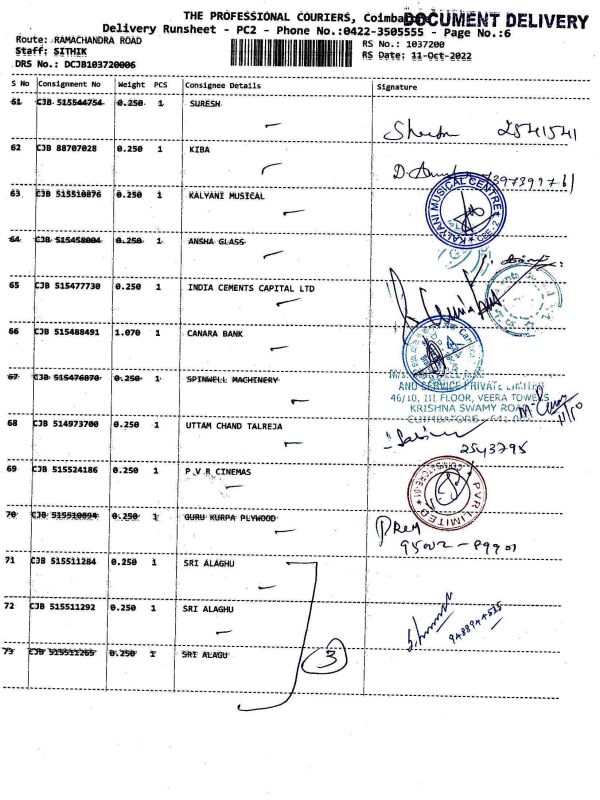 THE PROFESSIONAL COURIERS, Coimba
DOCUMENT DELIVERY
Delivery Runsheet - PC2 - Phone No.:0422-3505555 - Page No.:6
Route: RAMACHANDRA ROAD
RS No.: 1037200
Staff: SITHIK
RS Date: 11-Oct-2022
DRS No.: DCJB103720006
S No Consignment No Weight PCS Consignee Details Signature
61 CJB 515544754 0.250 1 SURESH
2541541
62 CJB 88707028 0.250 1 KIBA
63 CJB 515510876 0.250 1 KALYANI MUSICAL
KALYANI MUSICAL CENTRE CBE-2
64 CJB 515458004 0.250 1 ANSHA GLASS
65 CJB 515477730 0.250 1 INDIA CEMENTS CAPITAL LTD
66 CJB 515488491 1.070 1 CANARA BANK
67 CJB 515476870 0.250 1 SPINWELL MACHINERY
AND SERVICE PRIVATE LIMITED
46/10, III FLOOR, VEERA TOWERS
KRISHNA SWAMY ROAD
COIMBATORE - 641
11/10
68 CJB 514973700 0.250 1 UTTAM CHAND TALREJA
2543795
69 CJB 515524186 0.250 1 P V R CINEMAS
PVR LIMITED
70 CJB 515510894 0.250 1 GURU KURPA PLYWOOD
Prem
95002-89901
71 CJB 515511284 0.250 1 SRI ALAGHU
72 CJB 515511292 0.250 1 SRI ALAGHU
73 CJB 515511265 0.250 1 SRI ALAGU
3